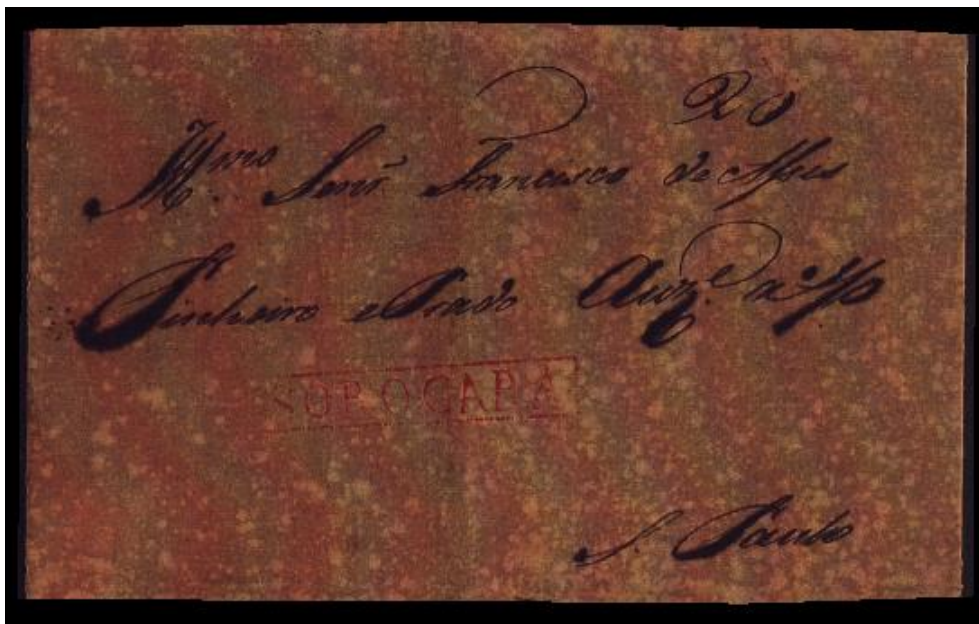 20
M.mo Senr. Francisco de Assis
Pinheiro e Prado Auz.e a o S/o
SOROCABA
S. Paulo